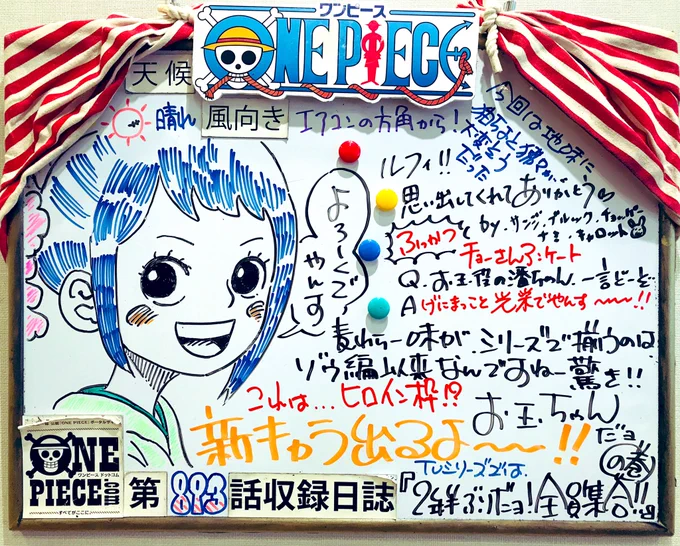 ワンピース
ONE PIECE
天候
晴れ
風向き
エアコンの方角から!
今回は地味に
大変そう
だった
ルフィ!!
思い出してくれてありがとう♡
by.サンジ.ブルック.チョッパー
ナミ.キャロット
ふっかつ
チョーさんアンケート
Q.お玉役の潘ちゃん.一言どーぞ
A げにまっこと光栄でやんす〜〜〜!!
よろしくで
やんす
麦わら一味が.シリーズで揃うのは
ゾウ編以来なんですねー驚き!!
これは...ヒロイン枠!?
お玉ちゃん
だョ
の巻
新キャラ出るよ〜〜!!
ONE
PIECE
ワンピース ドットコム
.com
すべてがここに
第893話収録日誌
TVシリーズでは、
『2年ぶりだョ!全員集合!!』